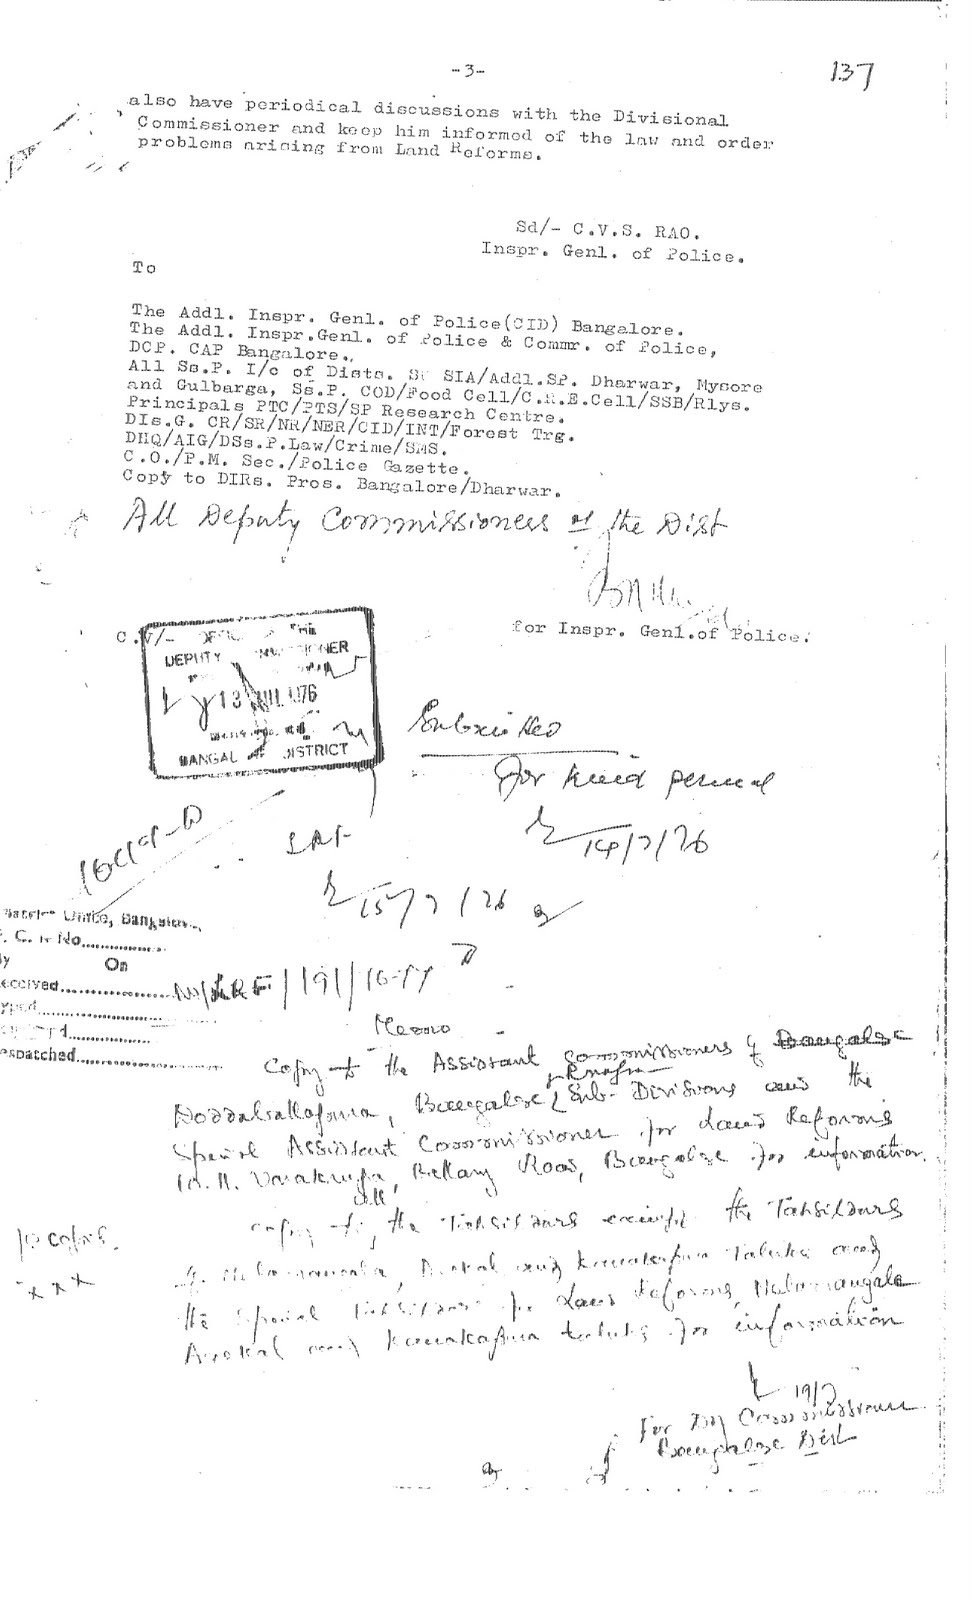 -3-
137
also have periodical discussions with the Divisional
Commissioner and keep him informed of the law and order
problems arising from Land Reforms.
Sd/- C.V.S. RAO.
Inspr. Genl. of Police.
To
The Addl. Inspr. Genl. of Police(CID) Bangalore.
The Addl. Inspr.Genl. of Police & Commr. of Police,
DCP. CAP Bangalore.,
All Ss.P. I/c of Dists. SIA/Addl.SP. Dharwar, Mysore
and Gulbarga, Ss.P. COD/Food Cell/C.R.E.Cell/SSB/Rlys.
Principals PTC/PTS/SP Research Centre.
DIs.G. CR/SR/NR/NER/CID/INT/Forest Trg.
DHQ/AIG/DSs.P.Law/Crime/SMS.
C.O./P.M. Sec./Police Gazette.
Copy to DIRs. Pros. Bangalore/Dharwar.
All Deputy Commissioners of the Dist
for Inspr. Genl.of Police.
OFFICE OF THE
DEPUTY COMMISSIONER
13 JUL 1976
BANGALORE DISTRICT
Submitted
for kind perusal
14/7/76
LRF
15/7/76
District Office, Bangalore
On
Received
Typed
Despatched
No/LRF/191/76-77
Memo
Copy to the Assistant Commissioners of Bangalore
Doddaballapura, Bangalore Sub-Divisions and the
Special Assistant Commissioner for Land Reforms
Bellary Road, Bangalore for information.
copy to all the Tahsildars except the Tahsildars
of Nelamangala, Anekal and Kanakapura Taluks and
the Special Tahsildars for Land Reforms, Nelamangala
Anekal and Kanakapura taluks for information
10 copies.
x x x
19/7
For Dy Commissioner
Bangalore Dist